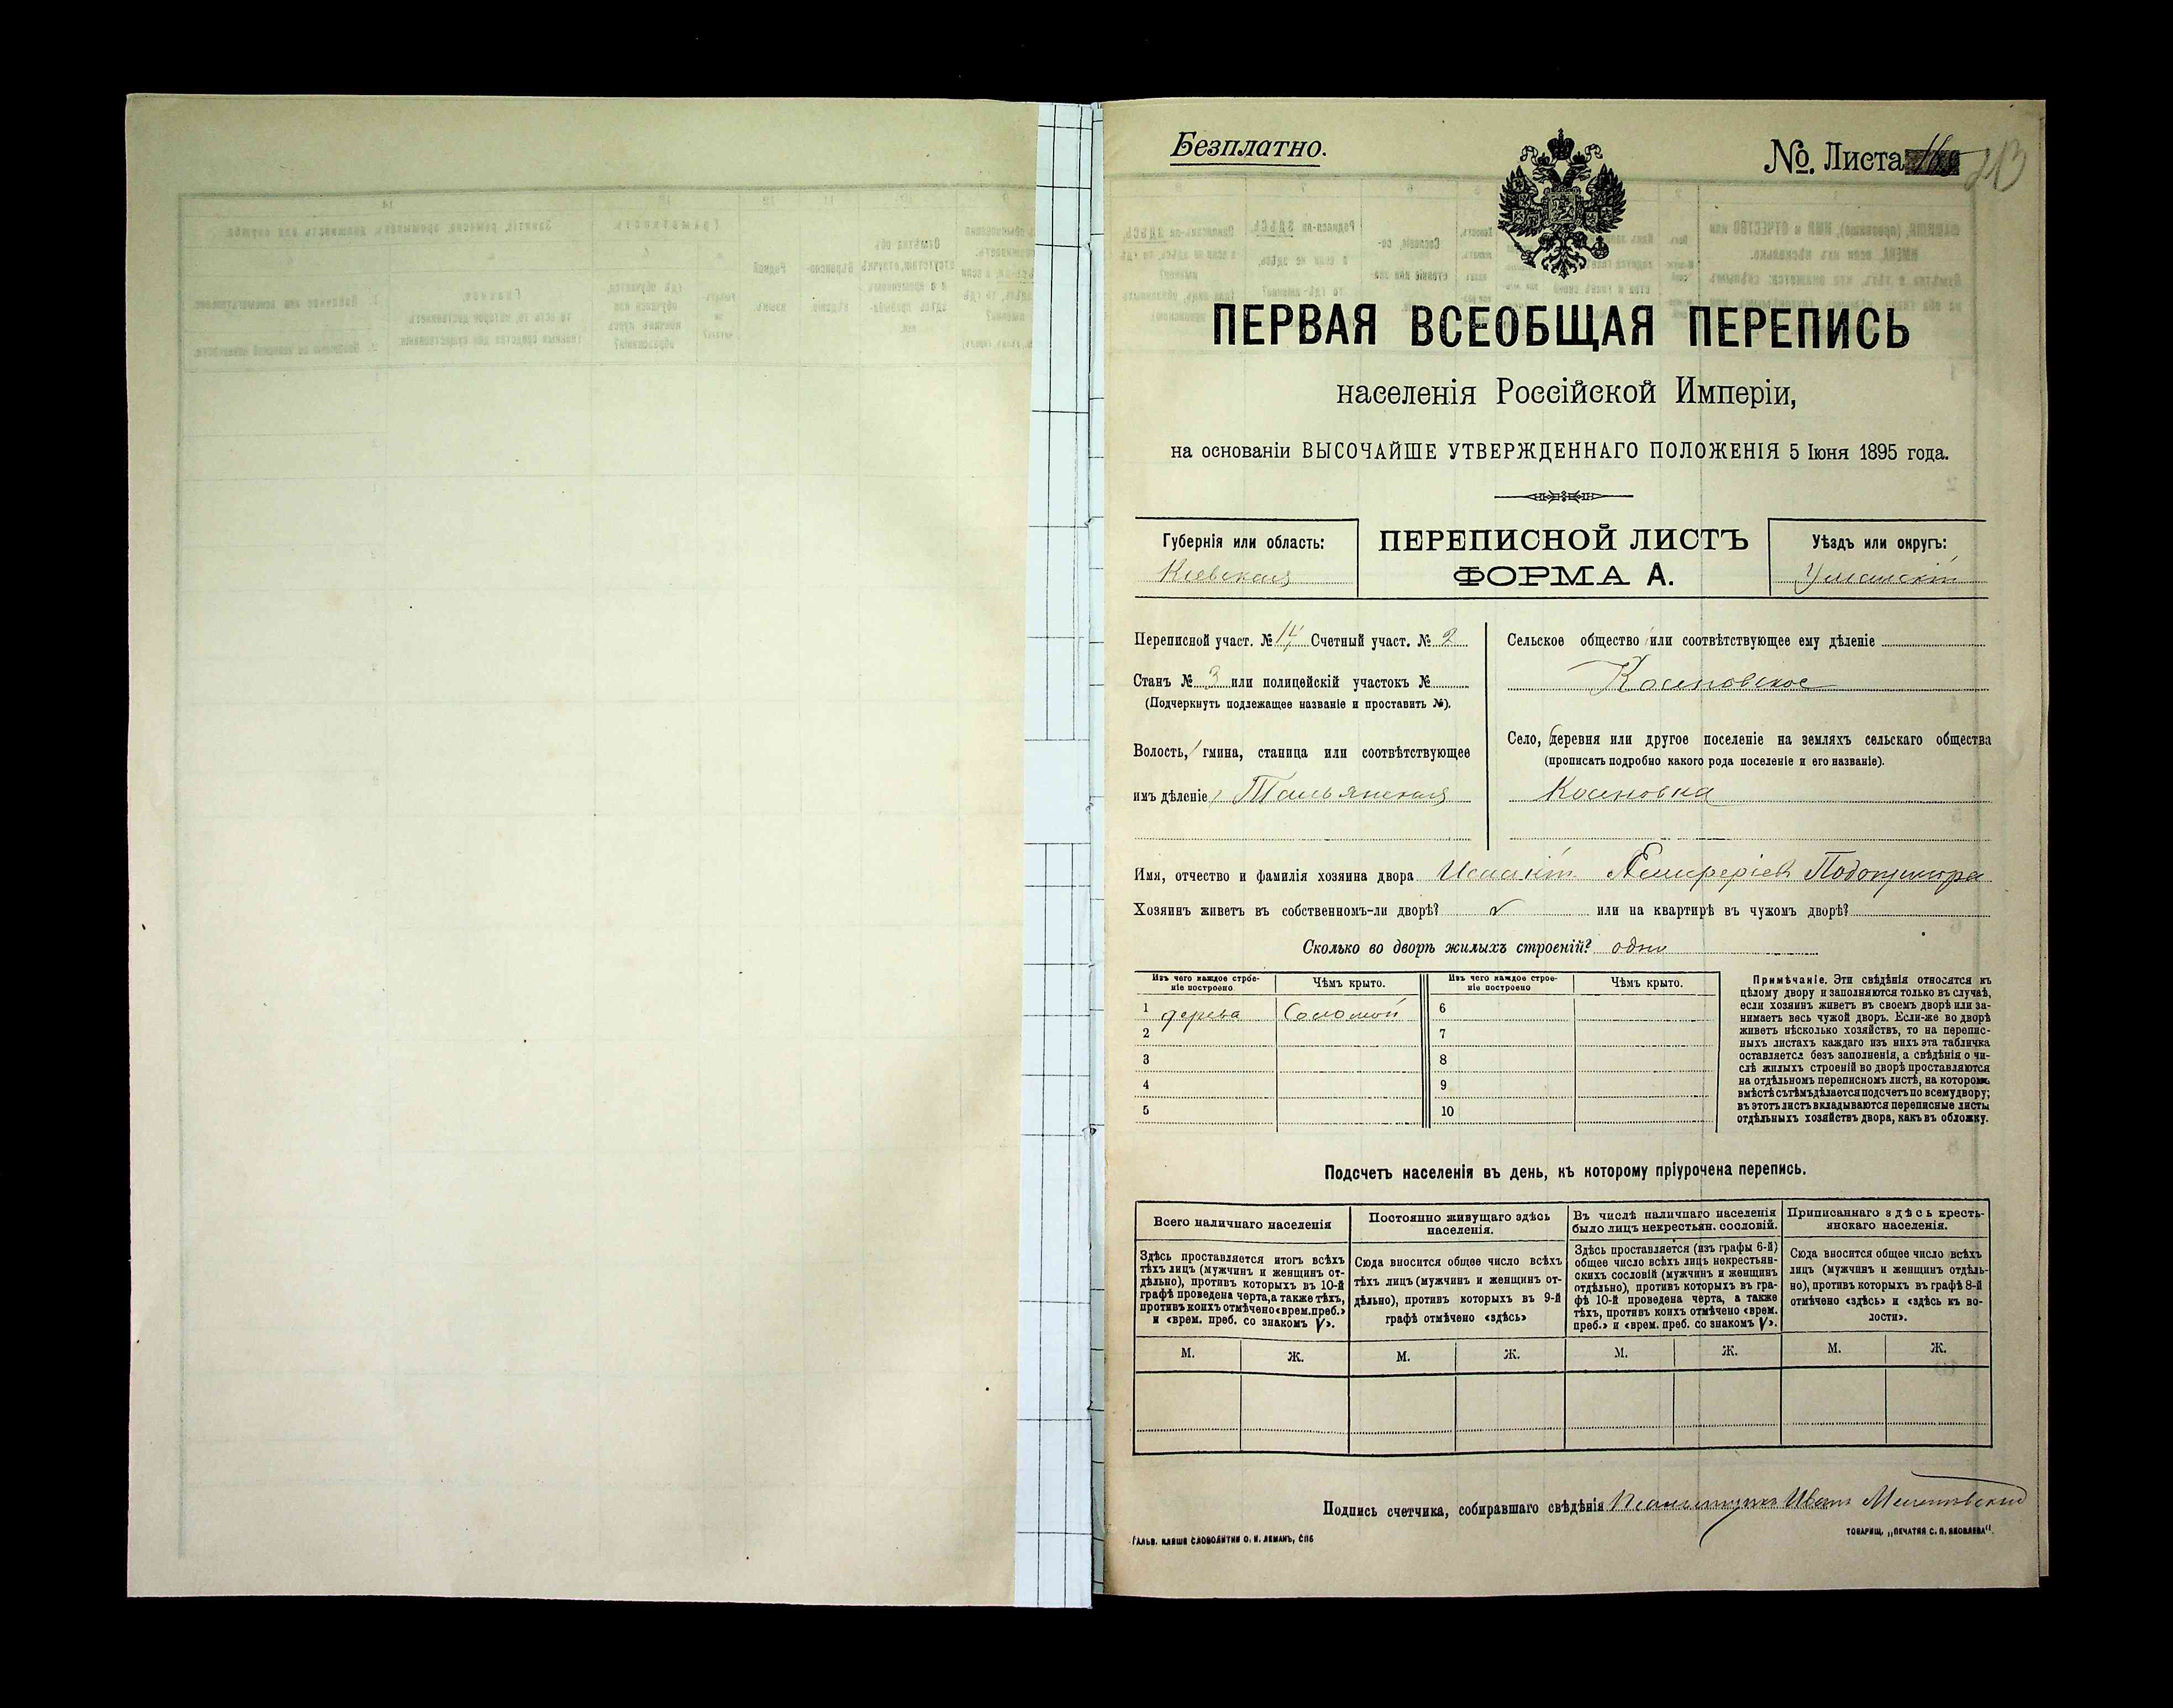 Безплатно.
№ Листа
ПЕРВАЯ ВСЕОБЩАЯ ПЕРЕПИСЬ
населенія Россійской Имперіи,
на основаніи ВЫСОЧАЙШЕ УТВЕРЖДЕННАГО ПОЛОЖЕНІЯ 5 Іюня 1895 года.
Губернія или область:
Кіевская
ПЕРЕПИСНОЙ ЛИСТЪ
ФОРМА А.
Уѣздъ или округъ:
Уманскій
Переписной участ. № 14 Счетный участ. № 2
Станъ № 3 или полицейскій участокъ №
(Подчеркнуть подлежащее названіе и проставить №).
Волость, гмина, станица или соотвѣтствующее
имъ дѣленіе Тальянская
Сельское общество или соотвѣтствующее ему дѣленіе
Косеновское
Село, деревня или другое поселеніе на земляхъ сельскаго общества
(прописать подробно какого рода поселеніе и его названіе).
Косеновка
Имя, отчество и фамилія хозяина двора
Хозяинъ живетъ въ собственномъ-ли дворѣ? или на квартирѣ въ чужомъ дворѣ?
Сколько во дворѣ жилыхъ строеній? одно
Изъ чего каждое строе-
ніе построено
Чѣмъ крыто.
Изъ чего каждое строе-
ніе построено
Чѣмъ крыто.
1 дерева Соломой 6
2 7
3 8
4 9
5 10
Примѣчаніе. Эти свѣдѣнія относятся къ
цѣлому двору и заполняются только въ случаѣ,
если хозяинъ живетъ въ своемъ дворѣ или за-
нимаетъ весь чужой дворъ. Если-же во дворѣ
живетъ нѣсколько хозяйствъ, то на перепис-
ныхъ листахъ каждаго изъ нихъ эта табличка
оставляется безъ заполненія, а свѣдѣнія о чи-
слѣ жилыхъ строеній во дворѣ проставляются
на отдѣльномъ переписномъ листѣ, на которомъ
вмѣстѣ съ тѣмъ дѣлается подсчетъ по всему двору;
въ этотъ листъ вкладываются переписные листы
отдѣльныхъ хозяйствъ двора, какъ въ обложку.
Подсчетъ населенія въ день, къ которому пріурочена перепись.
Всего наличнаго населенія
Здѣсь проставляется итогъ всѣхъ
тѣхъ лицъ (мужчинъ и женщинъ от-
дѣльно), противъ которыхъ въ 10-й
графѣ проведена черта, а также тѣхъ,
противъ коихъ отмѣчено «врем. преб.»
и «врем. преб. со знакомъ V».
Постоянно живущаго здѣсь
населенія.
Сюда вносится общее число всѣхъ
тѣхъ лицъ (мужчинъ и женщинъ от-
дѣльно), противъ которыхъ въ 9-й
графѣ отмѣчено «здѣсь»
Въ числѣ наличнаго населенія
было лицъ некрестьян. сословій.
Здѣсь проставляется (изъ графы 6-й)
общее число всѣхъ лицъ некрестьян-
скихъ сословій (мужчинъ и женщинъ
отдѣльно), противъ которыхъ въ гра-
фѣ 10-й проведена черта, а также
тѣхъ, противъ коихъ отмѣчено «врем.
преб.» и «врем. преб. со знакомъ V».
Приписаннаго здѣсь кресть-
янскаго населенія.
Сюда вносится общее число всѣхъ
лицъ (мужчинъ и женщинъ отдѣль-
но), противъ которыхъ въ графѣ 8-й
отмѣчено «здѣсь» и «здѣсь къ во-
лости».
М. Ж. М. Ж. М. Ж. М. Ж.
Подпись счетчика, собиравшаго свѣдѣнія Псаломщикъ Иванъ
ГАЛЬВ. КЛИШЕ СЛОВОЛИТНИ О. И. ЛЕМАНЪ, СПБ
ТОВАРИЩ. „ПЕЧАТНЯ С. П. ЯКОВЛЕВА".